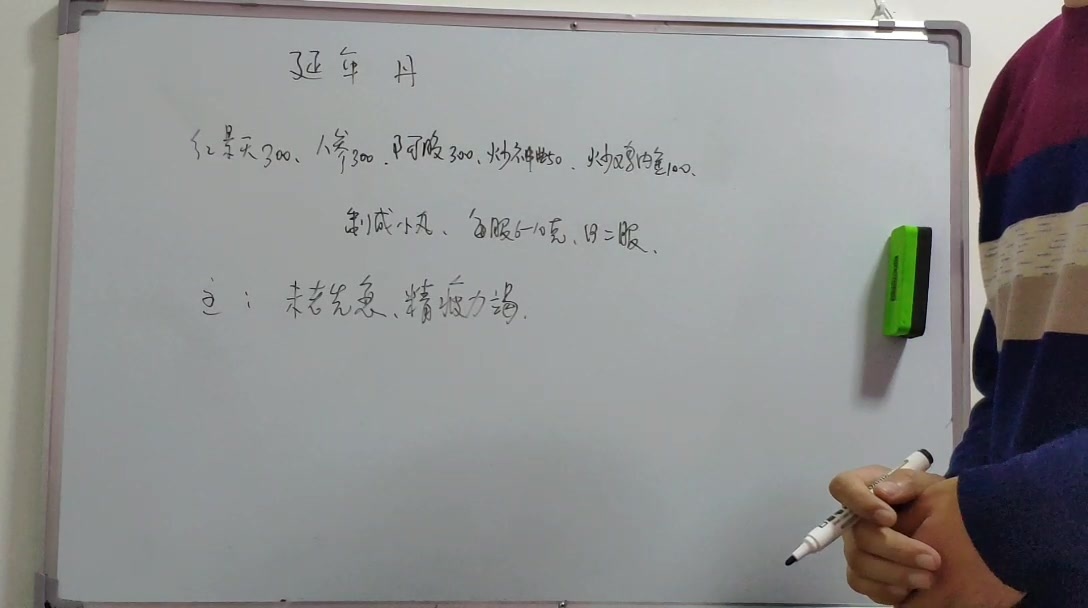 延年丹
红景天300、人参300、阿胶300、炒神曲50、炒鸡内金100、
制成小丸、每服6-10克、日二服、
主：未老先惫、精疲力竭.